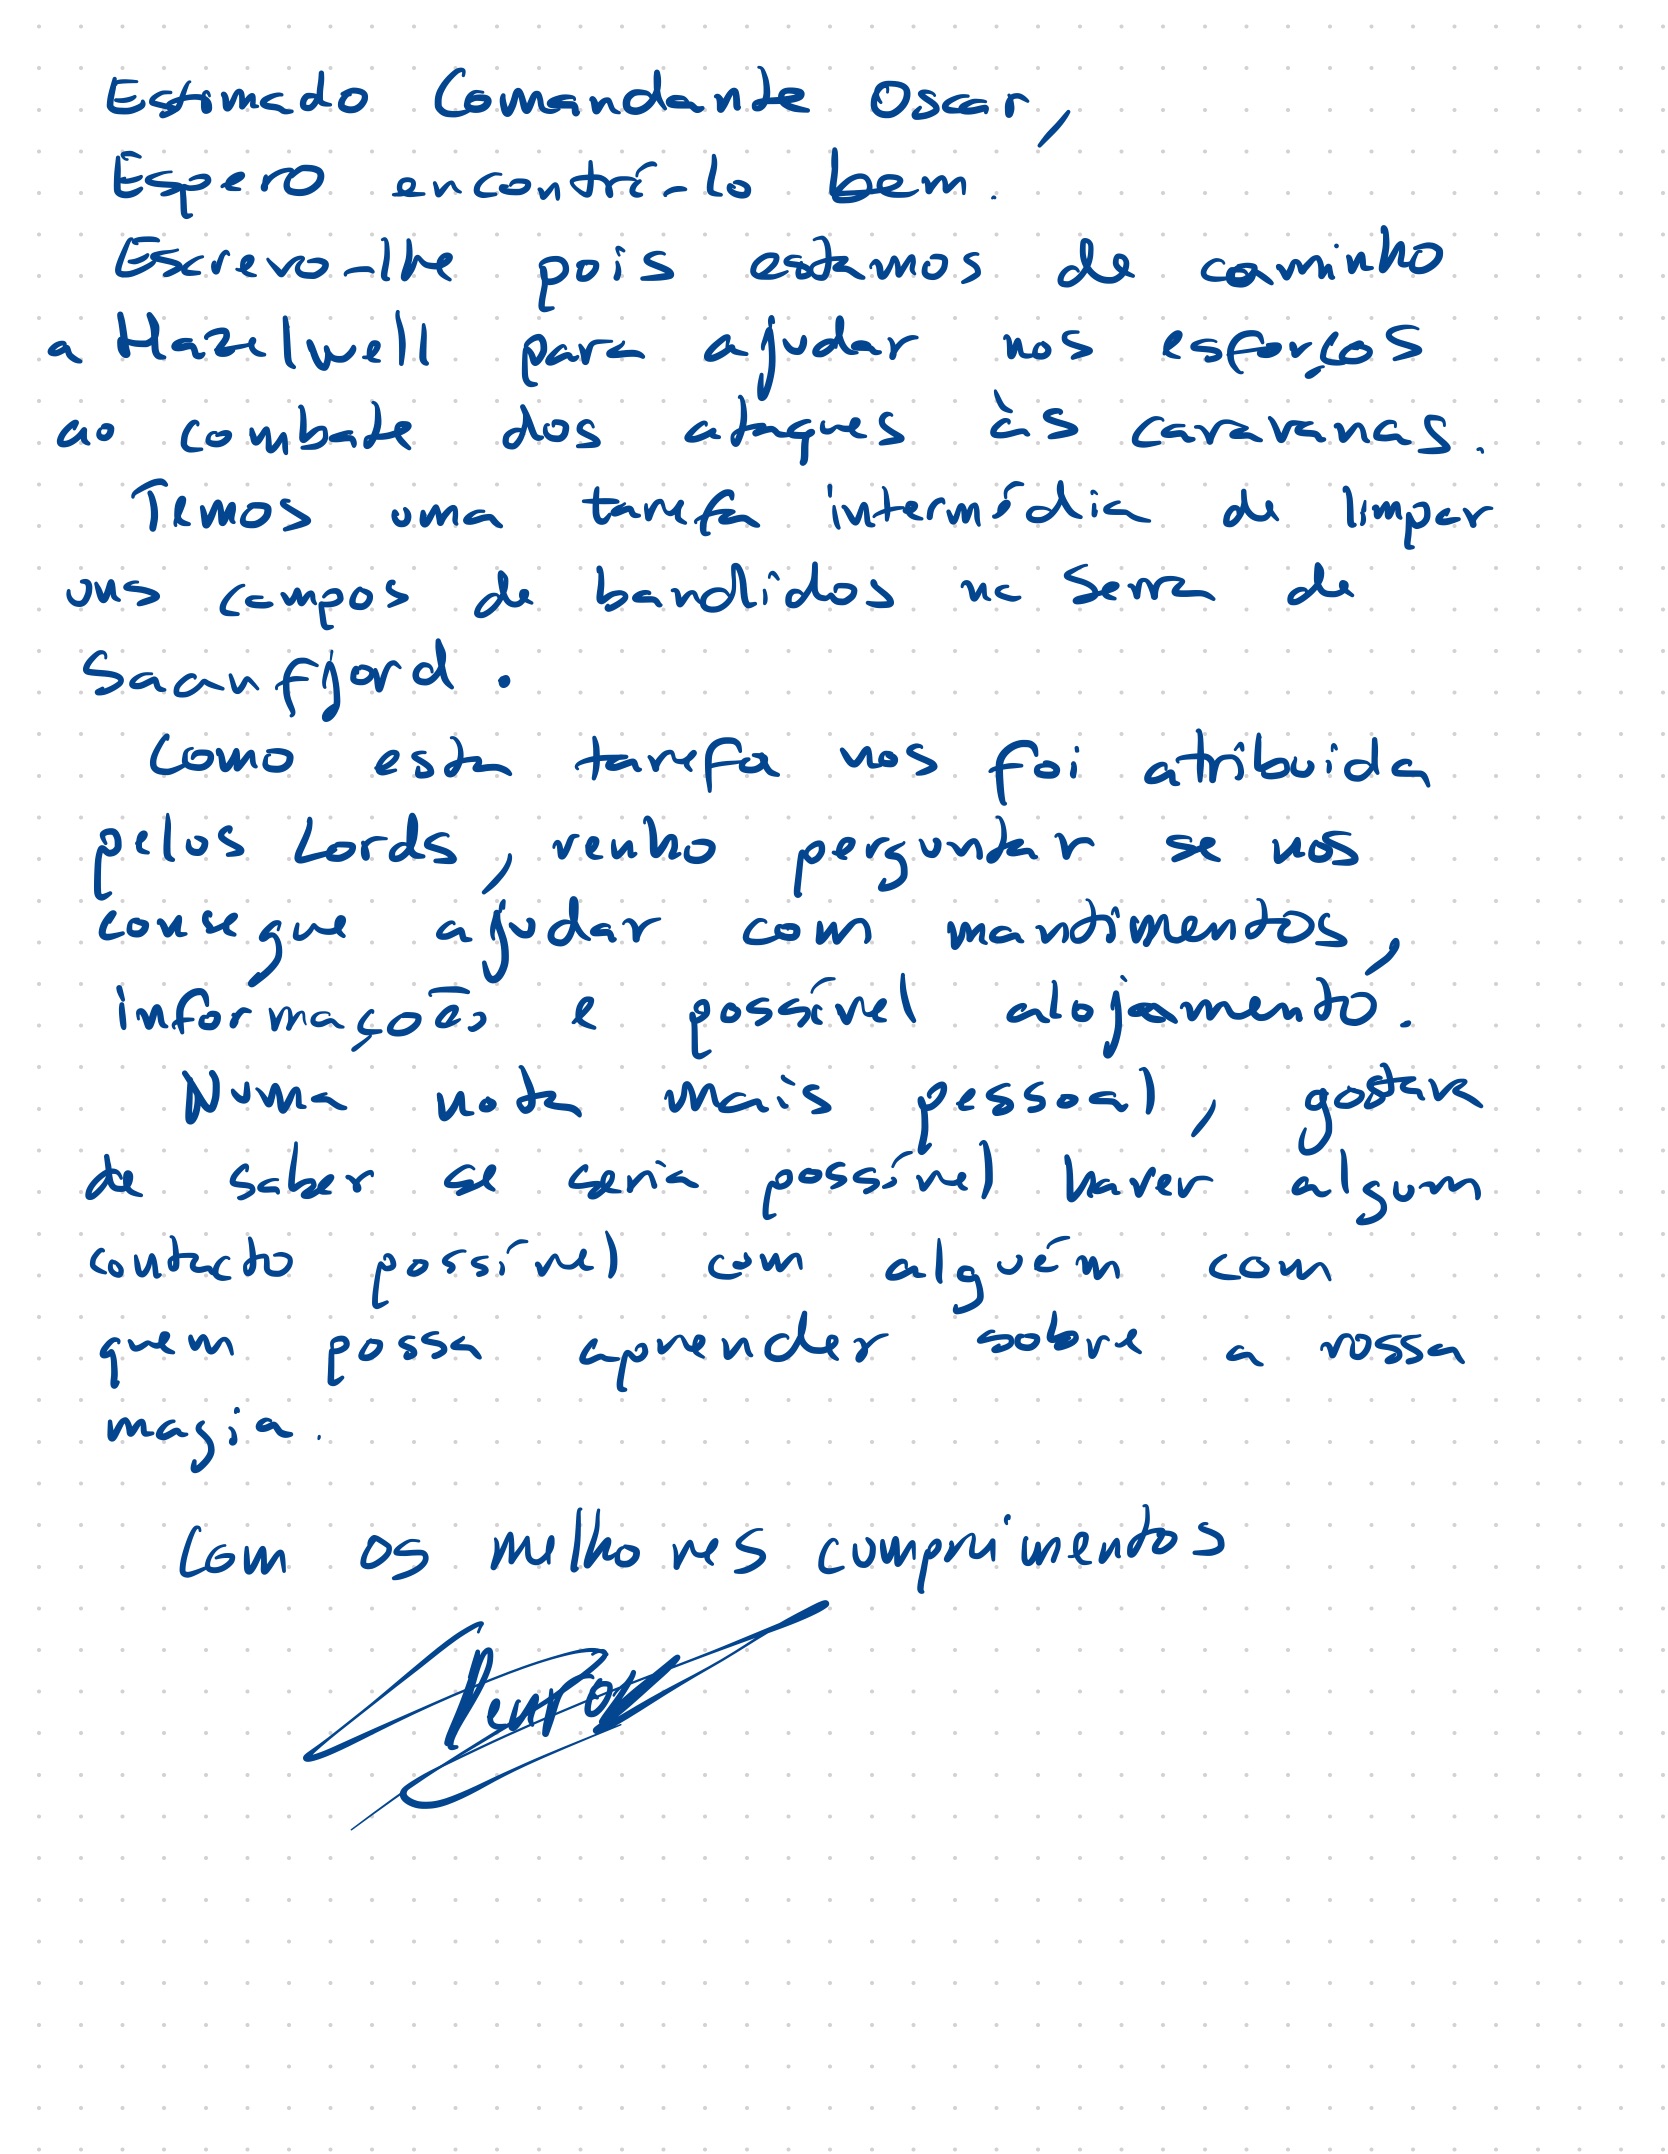 Estimado Comandante Oscar,
Espero encontrá-lo bem.
Escrevo-lhe pois estamos de caminho
a Hazelwell para ajudar nos esforços
ao combate dos ataques às caravanas.
Temos uma tarefa intermédia de limpar
uns campos de bandidos na Serra de
Saanfjord.
Como esta tarefa nos foi atribuida
pelos Lords, venho perguntar se nos
consegue ajudar com mantimentos,
informações e possível alojamento.
Numa nota mais pessoal, gostava
de saber se seria possível haver algum
contacto possível com alguém com
quem possa aprender sobre a vossa
magia.
Com os melhores cumprimentos